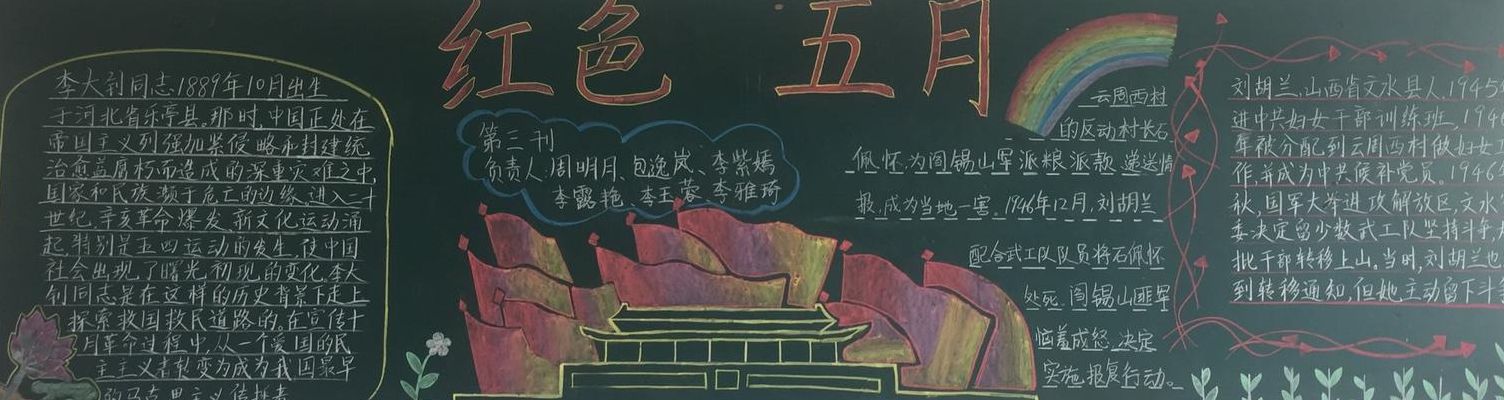 红色五月
李大钊同志1889年10月出生
于河北省乐亭县。那时,中国正处在
帝国主义列强加紧侵略和封建统
治愈益腐朽而造成的深重灾难之中,
国家和民族濒于危亡的边缘。进入二十
世纪,辛亥革命爆发、新文化运动涌
起,特别是五四运动的发生,使中国
社会出现了曙光初现的变化。李大
钊同志是在这样的历史背景下走上
探索救国救民道路的。在宣传十
月革命过程中,从一个爱国的民
主主义者转变为成为我国最早
的马克思主义传播者
第三刊
负责人:周明月、包逸岚、李紫嫣
李露艳、李玉蓉、李雅琦
刘胡兰,山西省文水县人,1945
进中共妇女干部训练班,194
年被分配到云周西村做妇女工
作,并成为中共候补党员。1946
秋,国军大举进攻解放区,文水
委决定留少数武工队坚持斗争,
批干部转移上山。当时,刘胡兰也
到转移通知,但她主动留下斗
云周西村
的反动村长石
佩怀,为阎锡山军派粮派款,递送情
报,成为当地一害。1946年12月,刘胡兰
配合武工队队员将石佩怀
处死,阎锡山匪军
恼羞成怒,决定
实施报复行动。